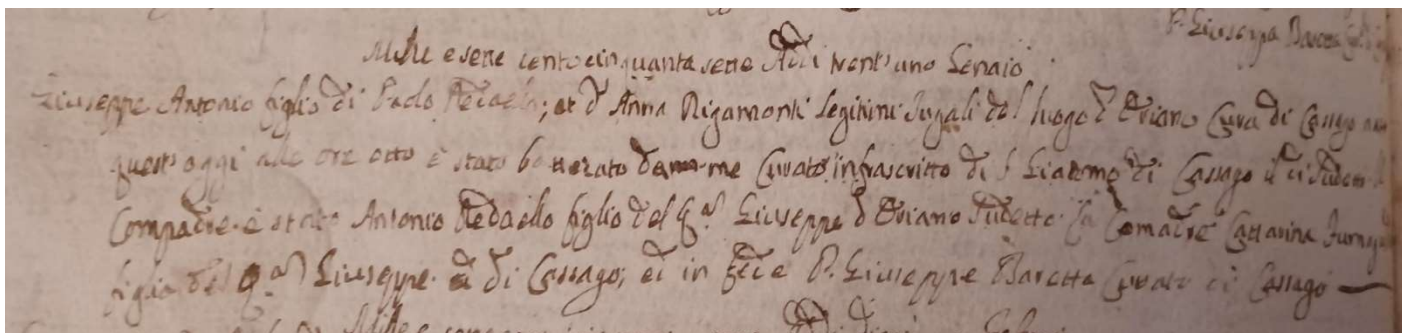 P. Giuseppe Baretta
Mille e sette cento cinquanta sette Addi trent'uno Genaio
Giuseppe Antonio figlio di Paolo Redaelo; et d Anna Rigamonti legitimi Jugali del luogo d Oriano Cura di Cassago
quest'oggi alle ore otto è stato battezato da me Curato infrascritto di S Giacomo di Cassago il di sudetto
Compadre è stato Antonio Redaello figlio del q.m Giuseppe d Oriano sudetto la Comadre Cattarina
figlia del q.m Giuseppe di Cassago; ed in fede P. Giuseppe Baretta Curato di Cassago
Mille e